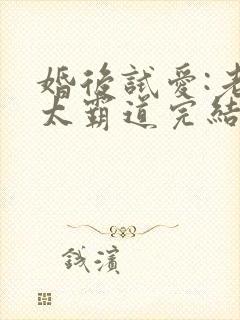 婚後試愛:老
太霸道完結
錢濱